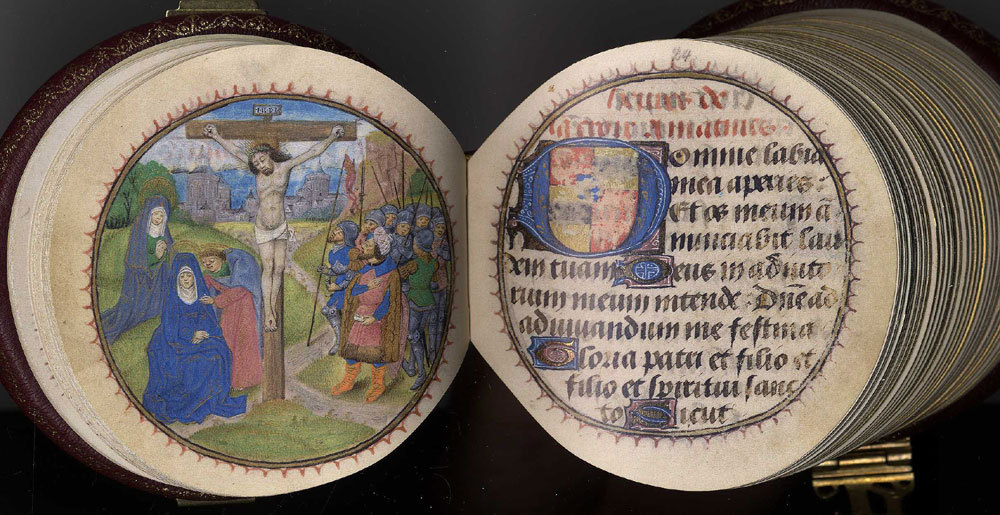 INRI
24
heures de
la croix A matines
Domine labia
mea aperies:
Et os meum a
nunciabit lau
dem tuam Deus in adiuto
rium meum intende: Dne ad
adiuuandum me festina
Gloria patri et filio et
filio et spiritui sanc
to Sicut